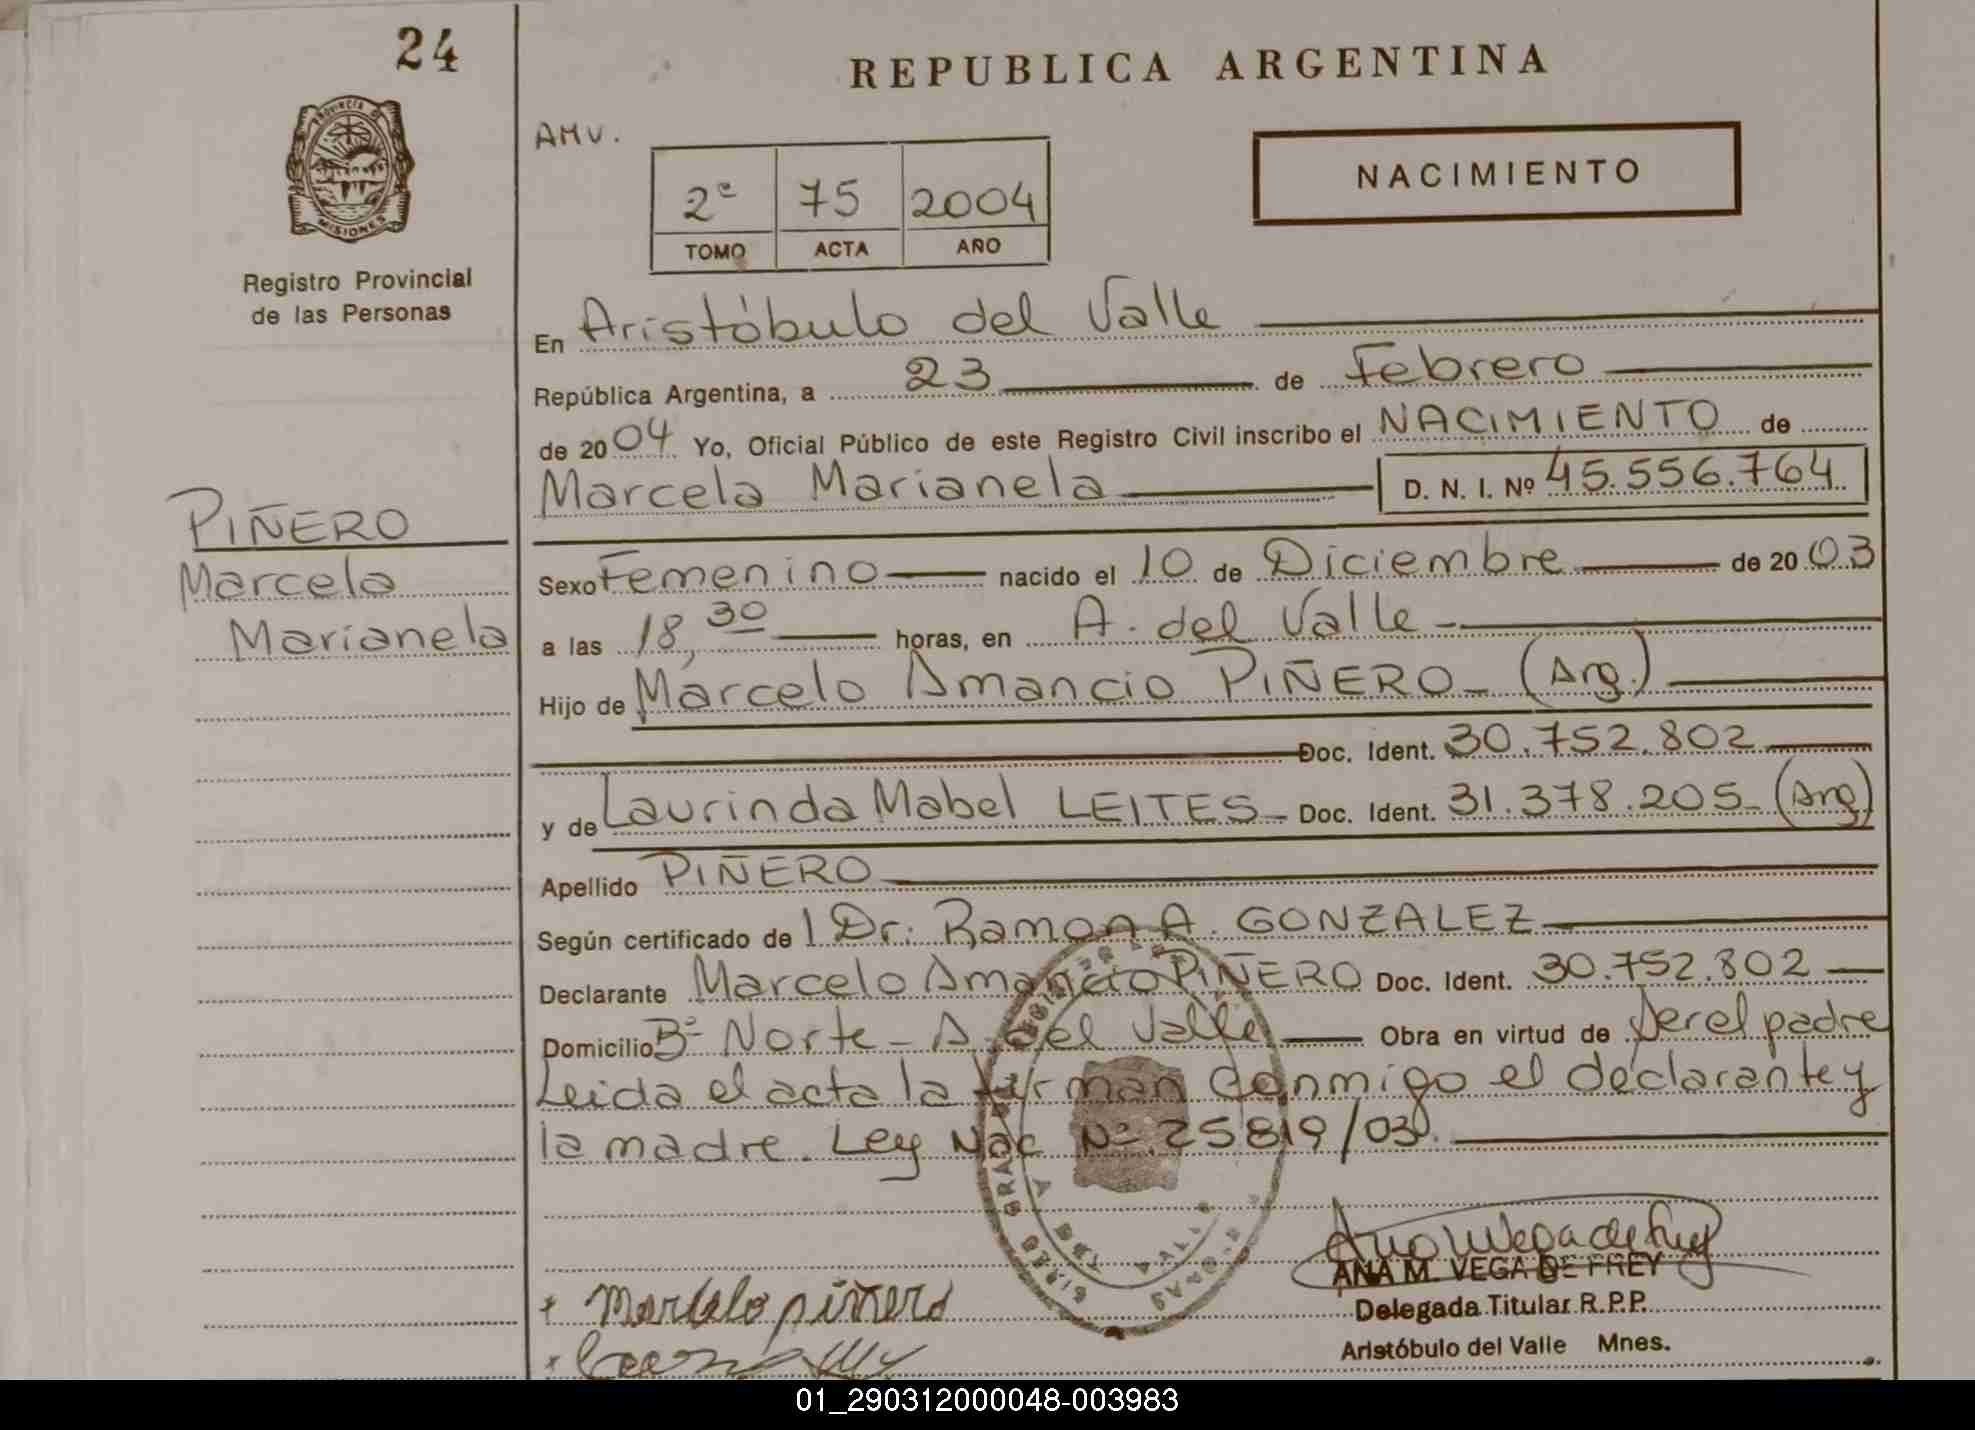 24
REPUBLICA ARGENTINA
AMV.
NACIMIENTO
2º 75 2004
TOMO ACTA AÑO
PROVINCIA DE
MISIONES
Registro Provincial
de las Personas
En Aristóbulo del Valle
República Argentina, a 23 de Febrero
de 2004 Yo, Oficial Público de este Registro Civil inscribo el NACIMIENTO de
Marcela Marianela D. N. I. Nº 45.556.764
PIÑERO
Marcela
Marianela
Sexo Femenino nacido el 10 de Diciembre de 2003
a las 18,30 horas, en A. del Valle
Hijo de Marcelo Amancio PIÑERO (Arg.)
Doc. Ident. 30.752.802
y de Laurinda Mabel LEITES Doc. Ident. 31.378.205 (Arg)
Apellido PIÑERO
Según certificado de l Dr. Ramon A. GONZALEZ
Declarante Marcelo Amancio PIÑERO Doc. Ident. 30.752.802
Domicilio Bº Norte - A. del Valle Obra en virtud de ser el padre
Leida el acta la firman conmigo el declarante y
la madre. Ley Nac Nº 25819/03.
Ana M Vega de Frey
ANA M. VEGA DE FREY
Delegada Titular R.P.P.
Aristóbulo del Valle Mnes.
Marcelo piñero
01_290312000048-003983